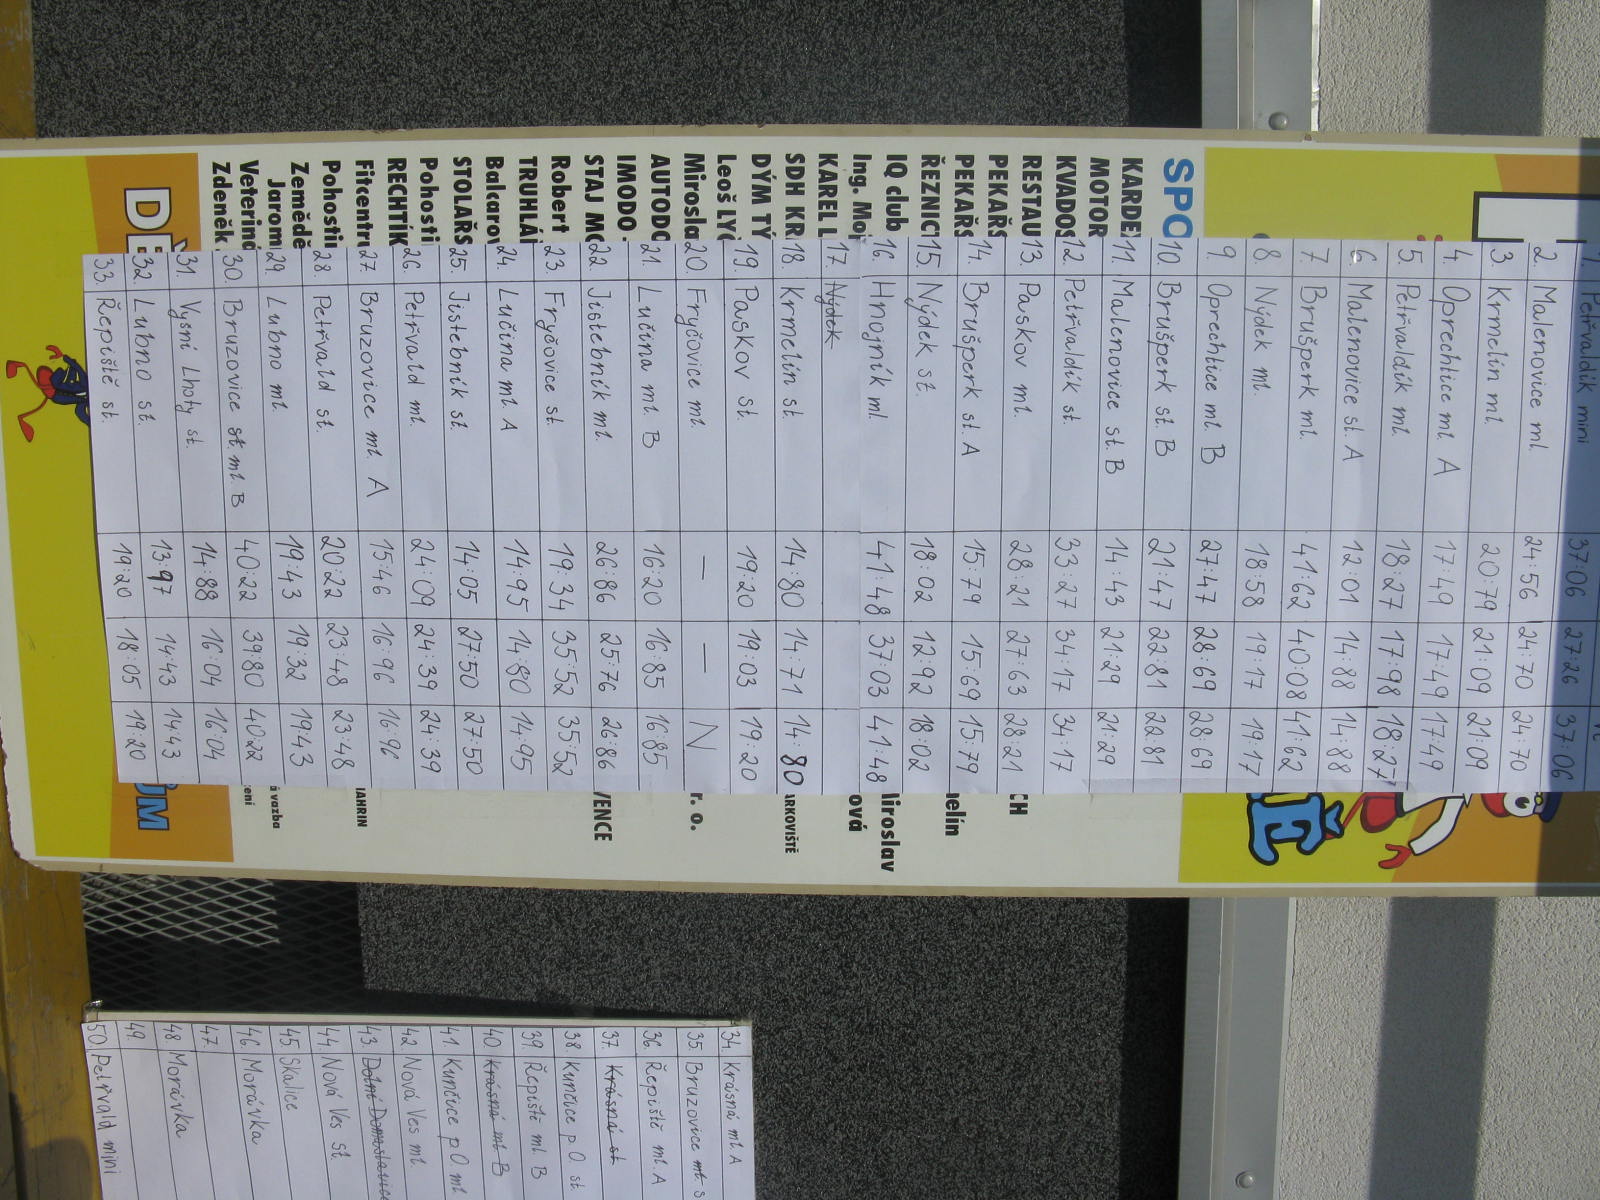 1. Petřvaldík mini 37:06 27:26 37:06
2. Malenovice ml. 24:56 24:70 24:70
3. Krmelín ml. 20:79 21:09 21:09
4. Oprechtice ml. A 17:49 17:49 17:49
5. Petřvaldík ml. 18:27 17:98 18:27
6. Malenovice st. A 12:01 14:88 14:88
7. Brušperk ml. 41:62 40:08 41:62
8. Nýdek ml. 18:58 19:17 19:17
9. Oprechtice ml. B 27:47 28:69 28:69
10. Brušperk st. B 21:47 22:81 22:81
11. Malenovice st. B 14:43 21:29 21:29
12. Petřvaldík st. 33:27 34:17 34:17
13. Paskov ml. 28:21 27:63 28:21
14. Brušperk st. A 15:79 15:69 15:79
15. Nýdek st. 18:02 12:92 18:02
16. Hnojník ml. 41:48 37:03 41:48
17. Nýdek
18. Krmelín st. 14:80 14:71 14:80
19. Paskov st. 19:20 19:03 19:20
20. Fryčovice ml. — — N
21. Lučina ml. B 16:20 16:85 16:85
22. Jistebník ml. 26:86 25:76 26:86
23. Fryčovice st. 19:34 35:52 35:52
24. Lučina ml. A 14:95 14:80 14:95
25. Jistebník st. 14:05 27:50 27:50
26. Petřvald ml. 24:09 24:39 24:39
27. Bruzovice ml. A 15:46 16:96 16:96
28. Petřvald st. 20:22 23:48 23:48
29. Lubno ml. 19:43 19:32 19:43
30. Bruzovice st ml. B 40:22 39:80 40:22
31. Vyšní Lhoty st. 14:88 16:04 16:04
32. Lubno st. 13:97 14:43 14:43
33. Řepiště st. 19:20 18:05 19:20
34. Krásná ml A
35. Bruzovice ml. s
36. Řepiště ml. A
37. Krásná st
38. Kunčice p O. st
39. Řepiště ml. B
40 Krásná ml. B
41. Kunčice p O. ml
42 Nová Ves ml
43. Dolní Domaslavice
44. Nová Ves st.
45. Skalice
46. Morávka
47.
48 Morávka
49.
50. Petřvald mini
SPO
KARDE
MOTOR
KVADOS
RESTAU
PEKAŘS
PEKAŘS
ŘEZNIC
IQ club
Ing. Moj
KAREL L
SDH KR
DÝM TÝ
Leoš LYČ
Mirosla
AUTODO
IMODO -
STAJ MO
Robert
TRUHLÁ
Balkarov
STOLAŘS
Pohosti
RECHTÍK
Fitcentru
Pohosti
Zemědě
Jaromí
Veteriná
Zdeněk
CH
nelín
Miroslav
ová
ARKOVIŠTĚ
r. o.
VENCE
JAHRIN
á vazba
ení